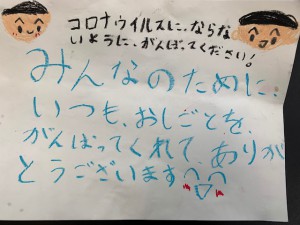 コロナウイルスに、ならな
いように、がんばってください!
みんなのために、
いつも、おしごとを、
がんばってくれて、ありが
とうございます